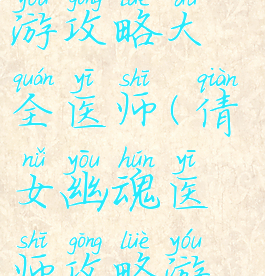 yóu gōng lüè dà
游攻略大
quán yī shī qiàn
全医师(倩
nǚ yōu hún yī
女幽魂医
shī gōng lüè yóu
师攻略游